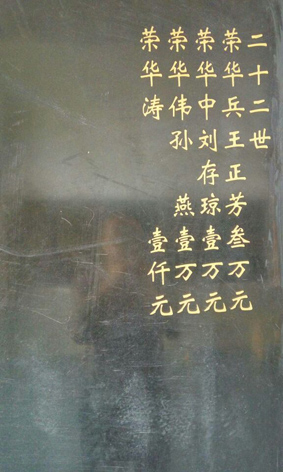 二十二世
荣华兵王正芳叁万元
荣华中刘存琼壹万元
荣华伟孙燕壹万元
荣华涛壹仟元